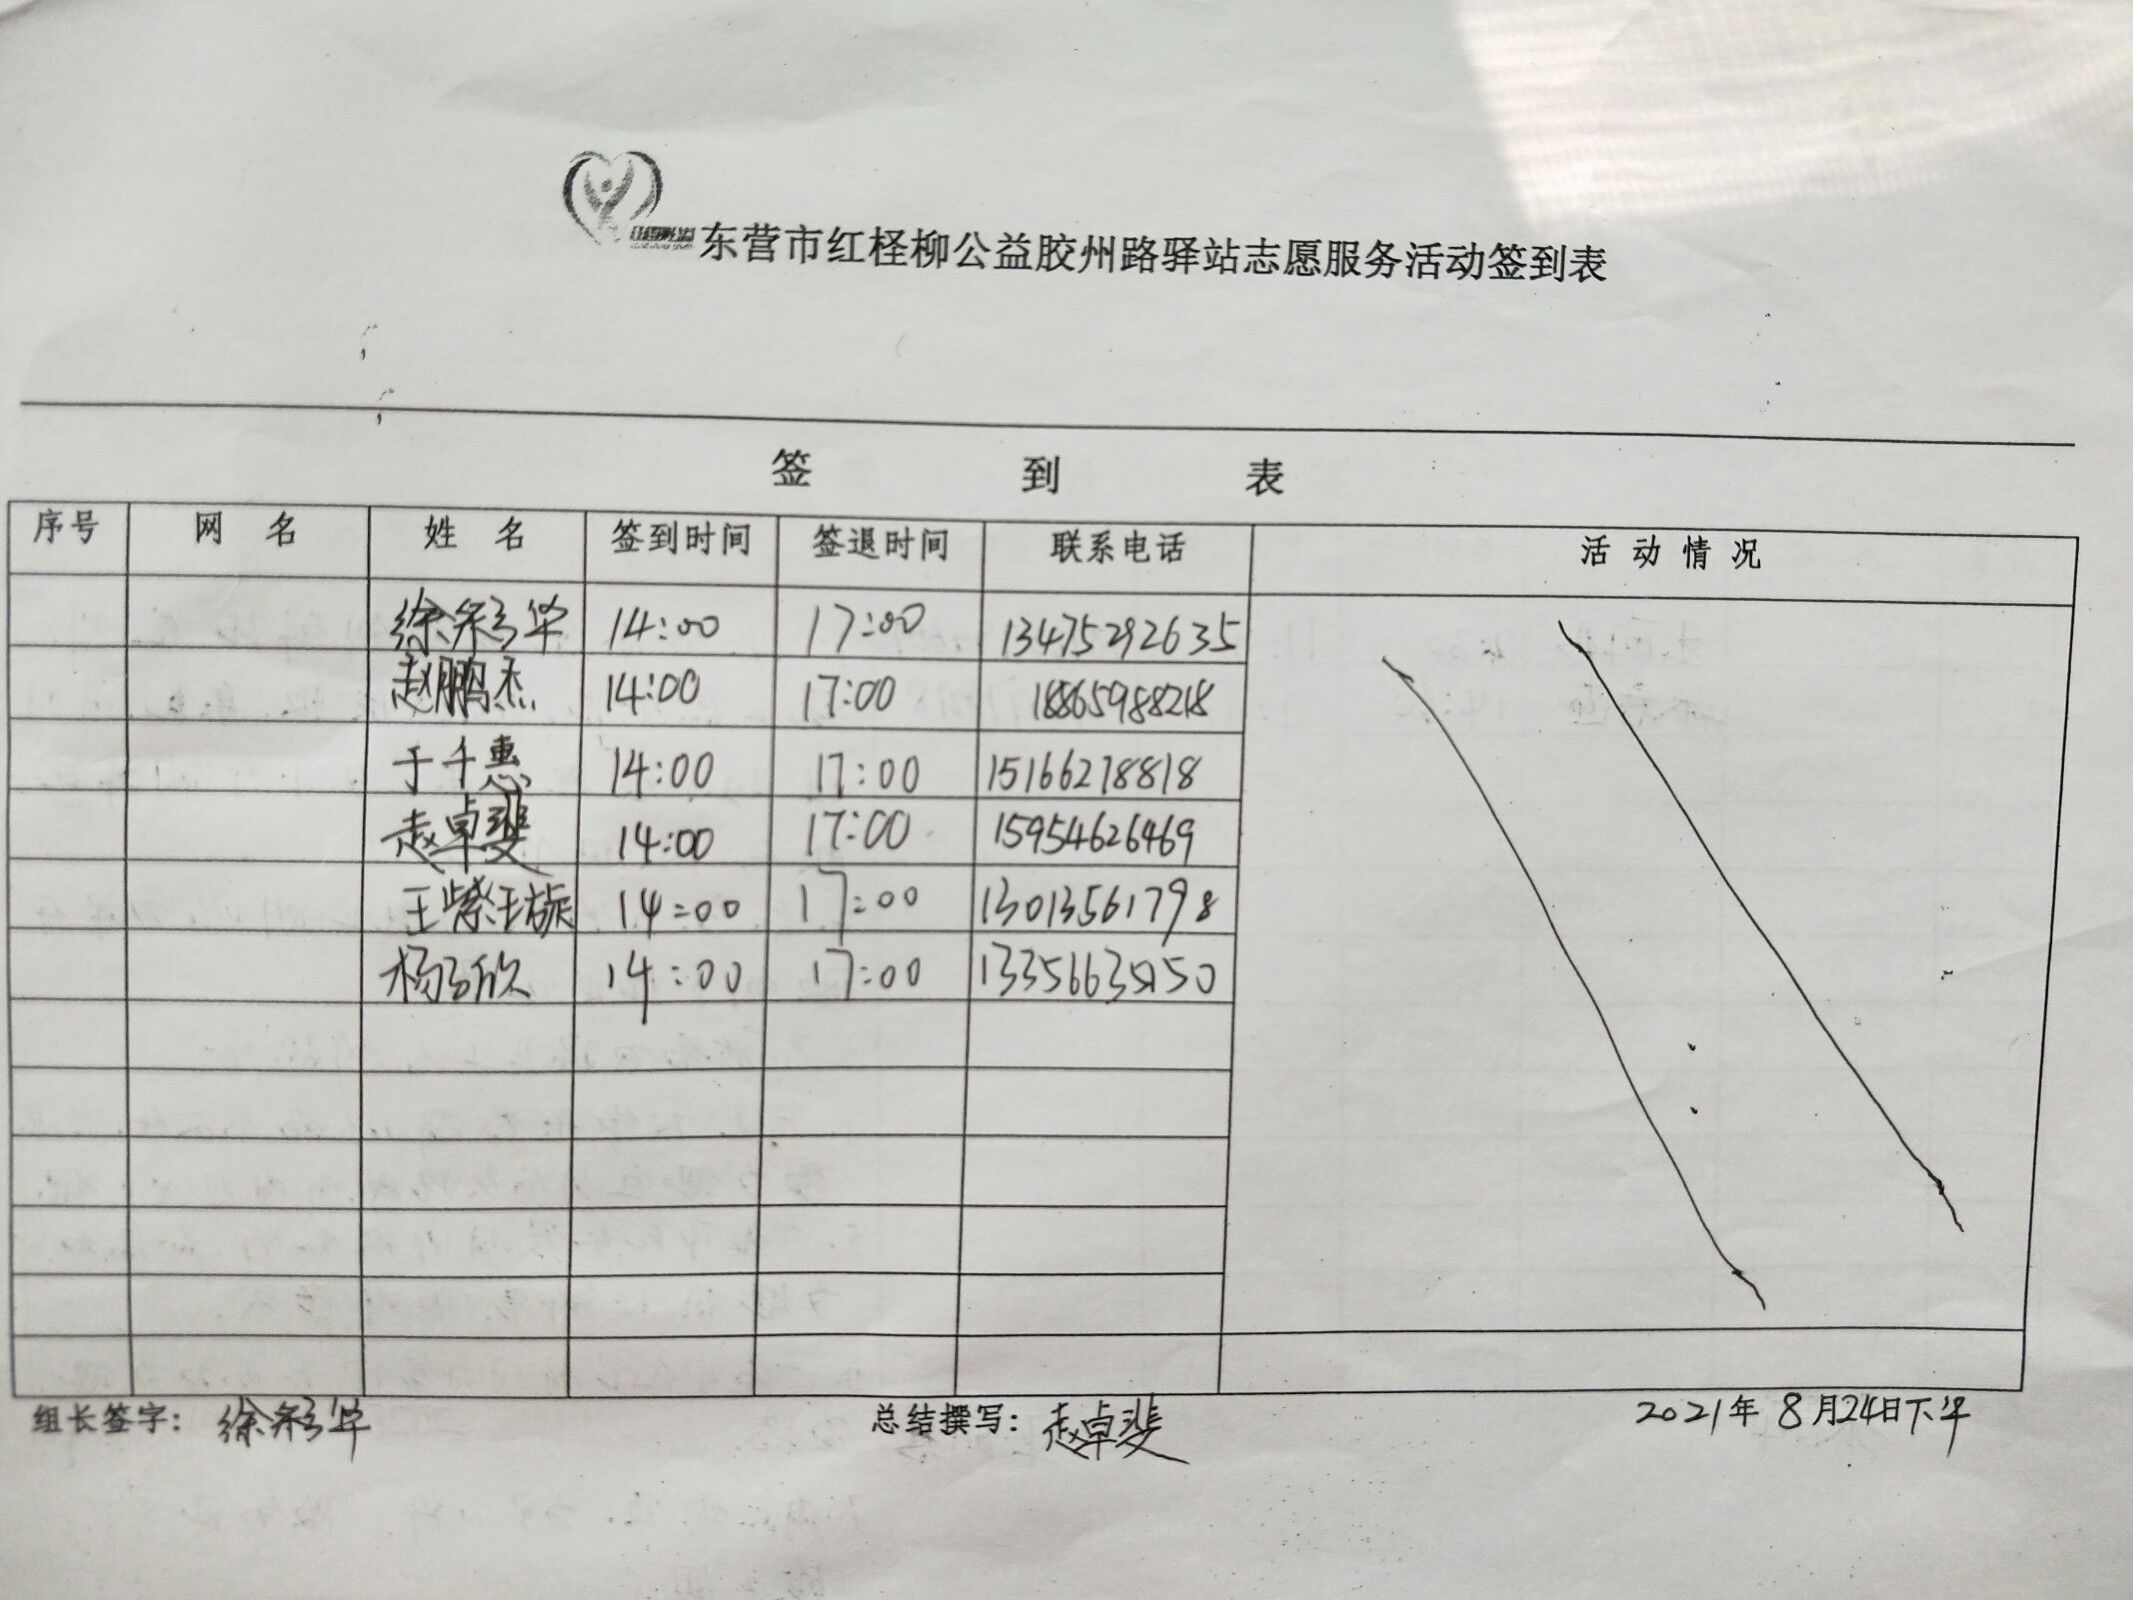 东营市红柽柳公益胶州路驿站志愿服务活动签到表
签 到 表
序号 网 名 姓 名 签到时间 签退时间 联系电话 活 动 情 况
徐彩华 14:00 17:00 13475292635
赵鹏杰 14:00 17:00 18865988218
于千惠 14:00 17:00 15166278818
赵卓斐 14:00 17:00 15954626469
王紫璇 14:00 17:00 13013561798
杨子欣 14:00 17:00
组长签字: 徐彩华 总结撰写: 赵卓斐 2021年 8月24日下午